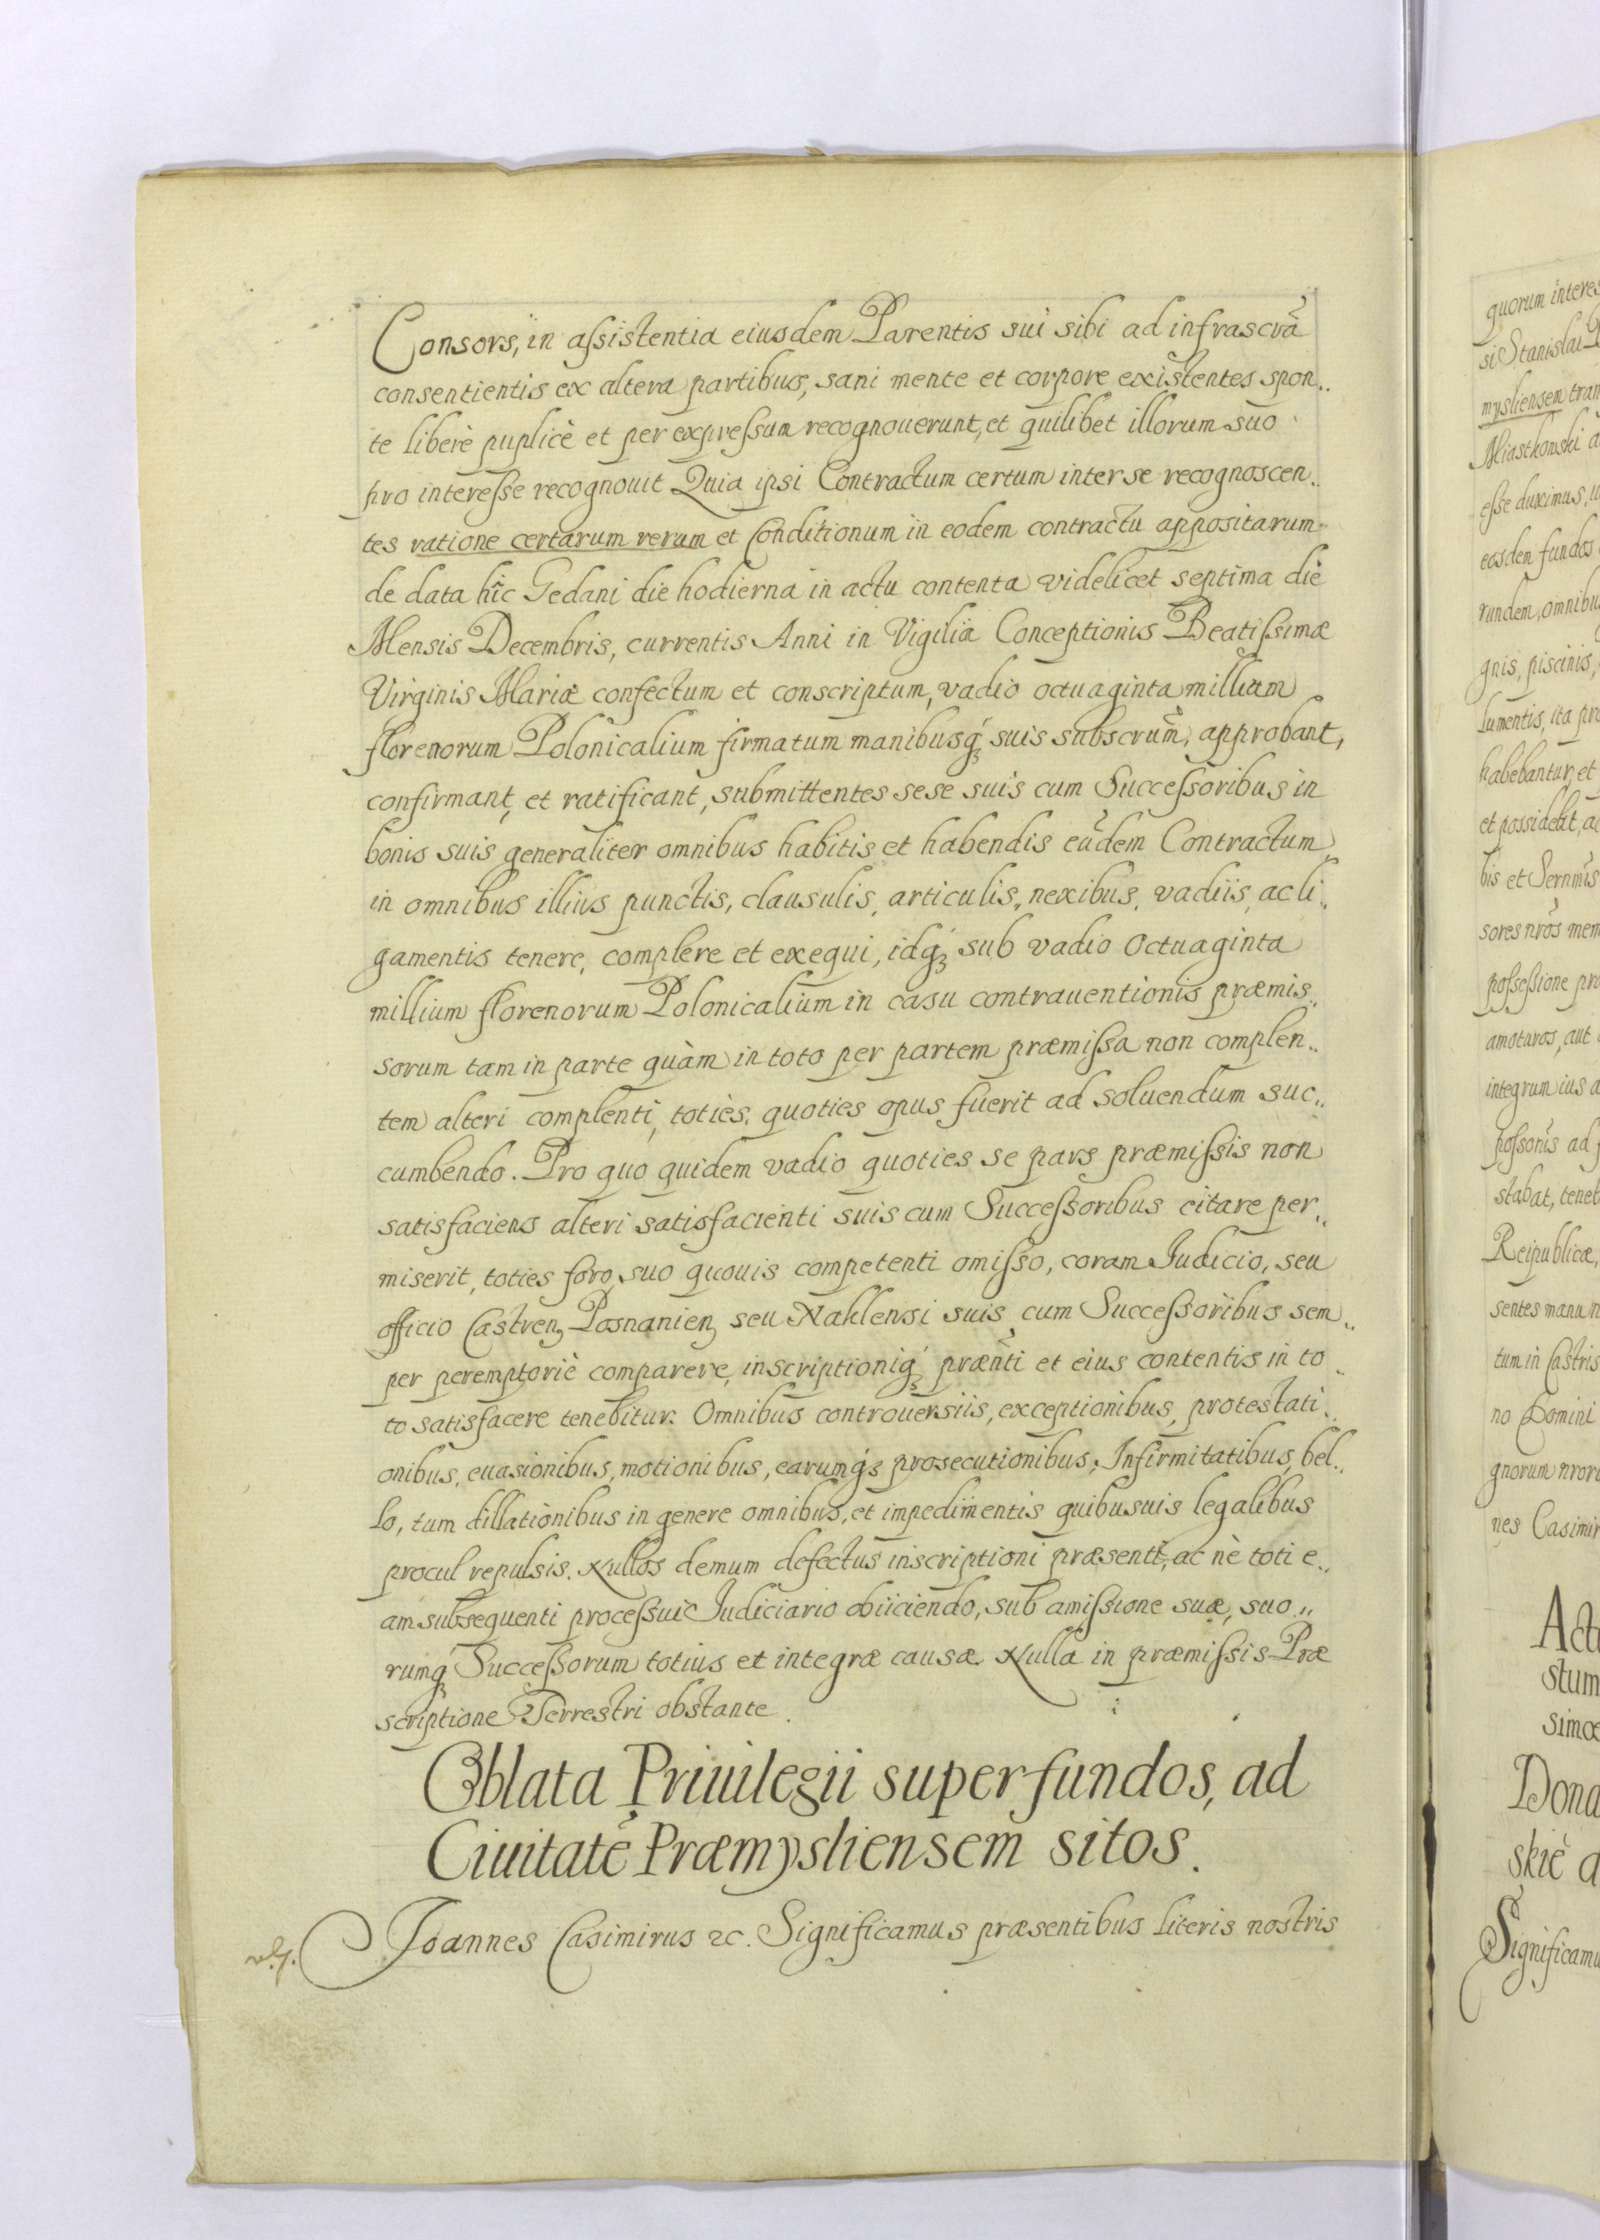 Consors, in assistentia eiusdem Parentis sui sibi ad infrascrã
consentientis ex altera partibus, sani mente et corpore existentes spon„
te liberè puplicè et per expressum recognouerunt, et quilibet illorum suo
pro interesse recognouit Quia ipsi Contractum certum inter se recognoscen„
tes ratione certarum rerum et Conditionum in eodem contractu appositarum
de data hîc Gedani die hodierna in actu contenta videlicet septima die
Mensis Decembris, currentis Anni in Vigilia Conceptionis Beatissimæ
Virginis Mariæ confectum et conscriptum, vadio octuaginta millium
florenorum Polonicalium firmatum manibusq́ꝫ suis subscrũm, approbant,
confirmant, et ratificant, submittentes sese suis cum Successoribus in
bonis suis generaliter omnibus habitis et habendis eũdem Contractum
in omnibus illius punctis, clausulis, articulis, nexibus, vadiis, ac li„
gamentis tenere, complere et exequi, idq́ꝫ sub vadio Octuaginta
millium florenorum Polonicalium in casu contrauentionis præmis„
sorum tam in parte quàm in toto per partem præmissa non complen„
tem alteri complenti, toties, quoties opus fuerit ad soluendum suc„
cumbendo. Pro quo quidem vadio quoties se pars præmissis non
satisfaciens alteri satisfacienti suis cum Successoribus citare per„
miserit, toties foro suo quouis competenti omisso, coram Iudicio, seu
officio Castrenꝫ Posnanienꝫ seu Naklensi suis cum Successoribus sem„
per peremptoriè comparere, inscriptioniq́ꝫ præñti et eius contentis in to„
to satisfacere tenebitur. Omnibus controuersiis, exceptionibus, protestati„
onibus, euasionibus, motionibus, earumq́ꝫ prosecutionibus, Infirmitatibus, bel„
lo, tum dillationibus in genere omnibus, et impedimentis quibusuis legalibus
procul repulsis. Nullos demum defectus inscriptioni præsenti, ac nè toti e„
am subsequenti processui Iudiciario obiiciendo, sub amissione suæ, suo„
rumq́ꝫ Successorum totius et integræ causæ. Nulla in præmissis Præ
scriptione Terrestri obstante.
Oblata Priuilegii super fundos, ad
Ciuitatẽ Præmysliensem sitos.
Ioannes Casimirus ꝛc. Significamus præsentibus literis nostris
quorum interes
si Stanislai
mysliensem tran
Miastkonski a
esse duximus, u
eosdem fundos
rundem, omnibu
gnis, piscinis,
lumentis, ita pro
habebantur, et
et possidebat, ac
bis et Sernm̃s
sores nr̃os mem
possessione pro
amoturos, aut
integrum ius a
possoris ad
stabat, tenet
Reipublicæ,
sentes manu n
tum in Castris
no Domini
gnorum nror
nes Casimir
Actu
stum
simæ
Dona
skiè a
Significamu